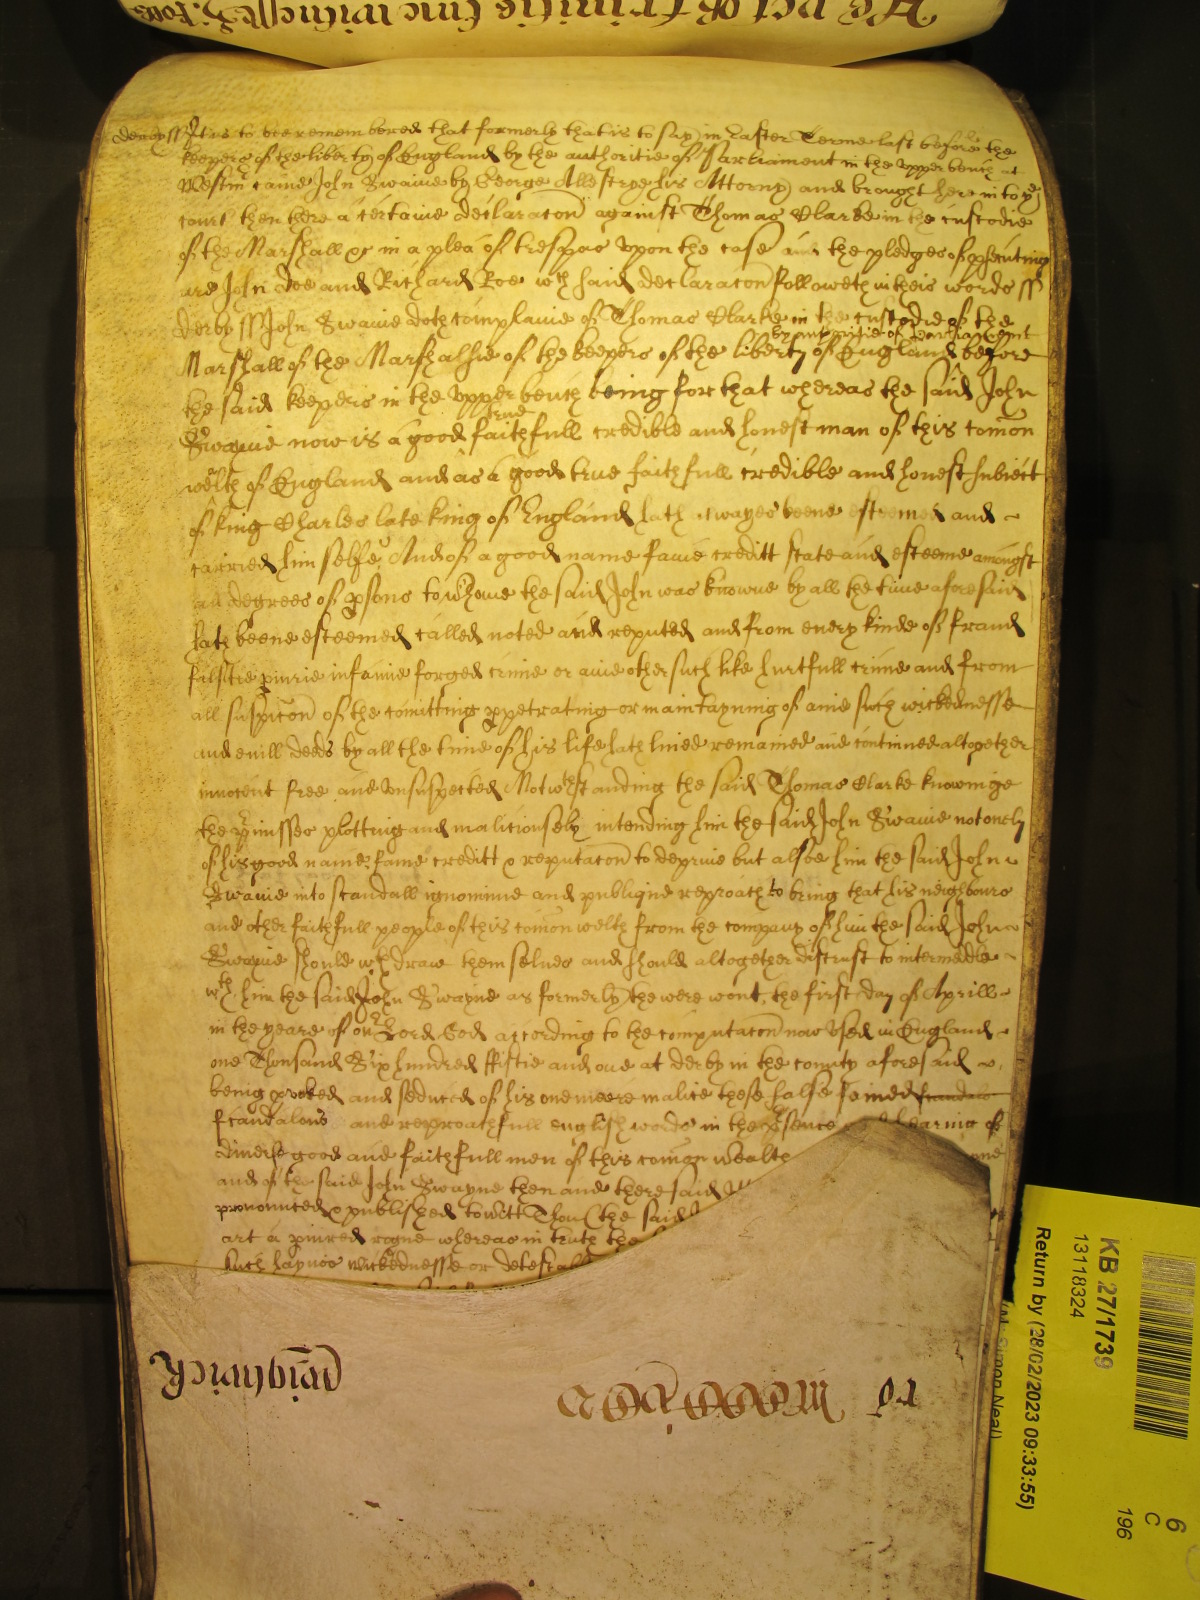 derby ss It is to bee remembered that formerly that is to say in Easter Terme last before the
keepers of the liberty of England by the authoritie of Parliament in the upper bench at
Westm̃ came John Swaine by George Allestrye his Attorny and brought here into ye
court then there a certaine declaracon against Thomas Clarke in the custodie
of the Marshall &c in a plea of trespas upon the case and the pledges of psecuting
are John Doe and Richard Roe wch said declaracon followeth in theis words ss
Derby ss John Swaine doth complaine of Thomas Clarke in the custodie of the
by authoritie of Parliament
Marshall of the Marshalsie of the keepers of the liberty of England before
the said keepers in the upper bench being for that whereas the said John
true
Swayne now is a good faithfull credible and honest man of this comon
welth of England and as a good true faithfull credible and honest subiect
of king Charles late king of England hath alwayes beene esteemed and
carried himselfe And of a good name fame creditt state and esteeme amongst
all degrees of psons to whome the said John was knowne by all the time aforesaid
hath beene esteemed called noted and reputed and from every kinde of fraud
falsitie piurie infamie forged crime or anie other such like hurtfull crime and from
all suspicon of the comitting ppetrating or maintayning of anie such wickednesse
and evill deeds by all the time of his life hath lived remained and continued altogether
innocent free and unsuspected Notwthstanding the said Thomas Clarke knowinge
the pmisses plotting and maliciously intending him the said John Swaine not onely
of his good name fame creditt & reputacon to deprive but alsoe him the said John
Swaine into scandall ignominie and publique reproach to bring that his neighbours
and other faithfull people of this comonwelth from the company of him the said John
Swayne should wthdraw themselves and should altogether distrust to intermeddle
wth him the said John Swayne as formerly they were wont, the first day of Aprill
in the yeare of our Lord God according to the computacon now used in England
one Thousand Six hundred fiftie and one at derby in the county aforesaid
being pvoked and seduced of his one meere malice these false fained scandalo
scandalous and reproachfull english words in the psence and hearing of
diverse good and faithfull men of this comon wealth
and of the said John Swayne then and there said
pronounced & published to witt Thou (the said
art a piured rogue whereas in truth the
such haynos wickednesse or detestabl
KB 27/1739
13118324
Return by (28/02/2023 09:33:55)
(Mr Simon Neal)
6
C
196